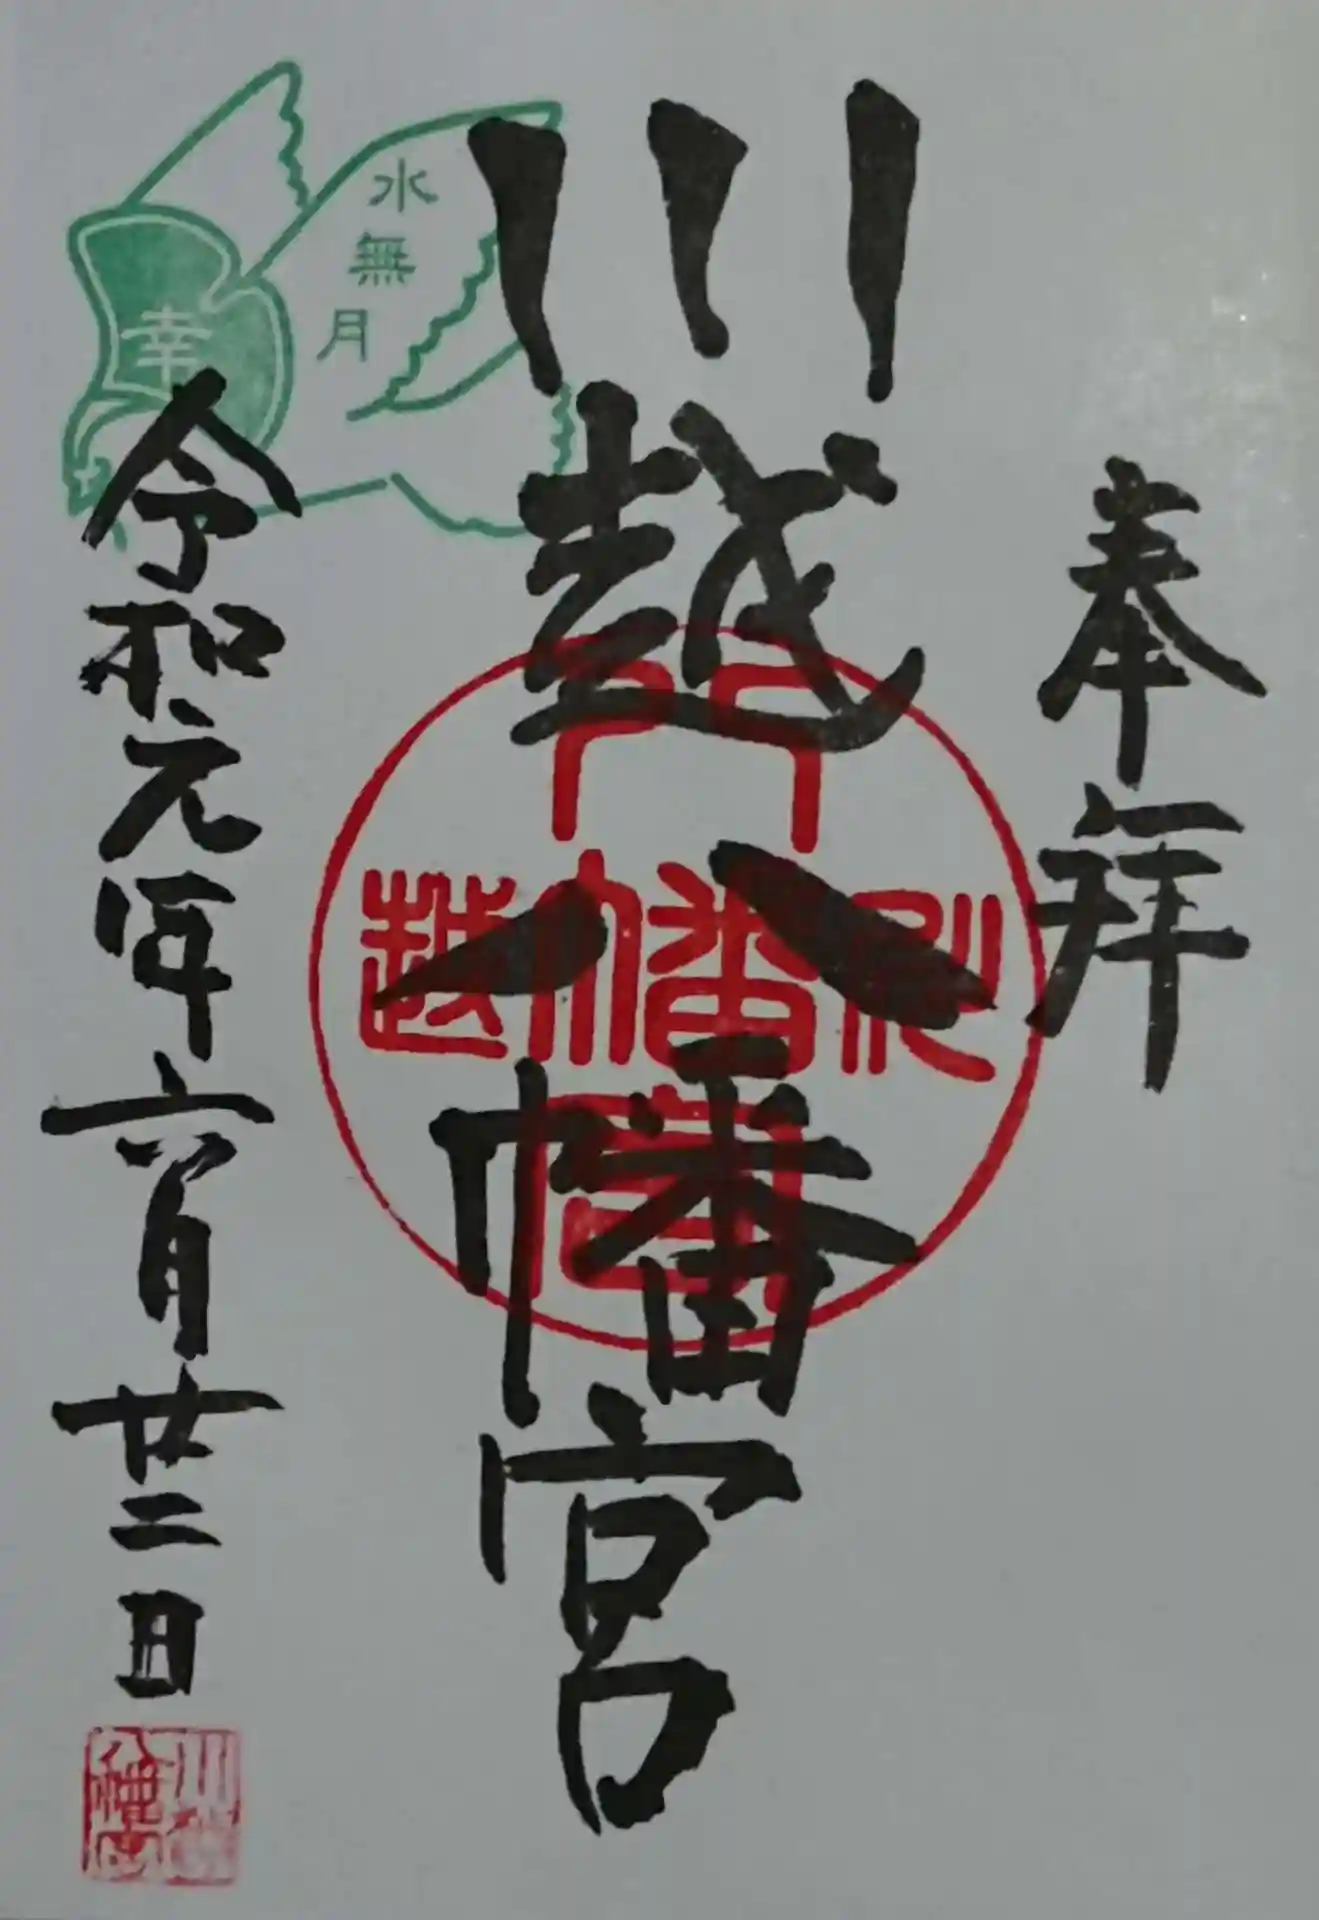 奉拝
川越八幡宮
水無月
幸
令和元年六月廿二日
川越
八幡宮